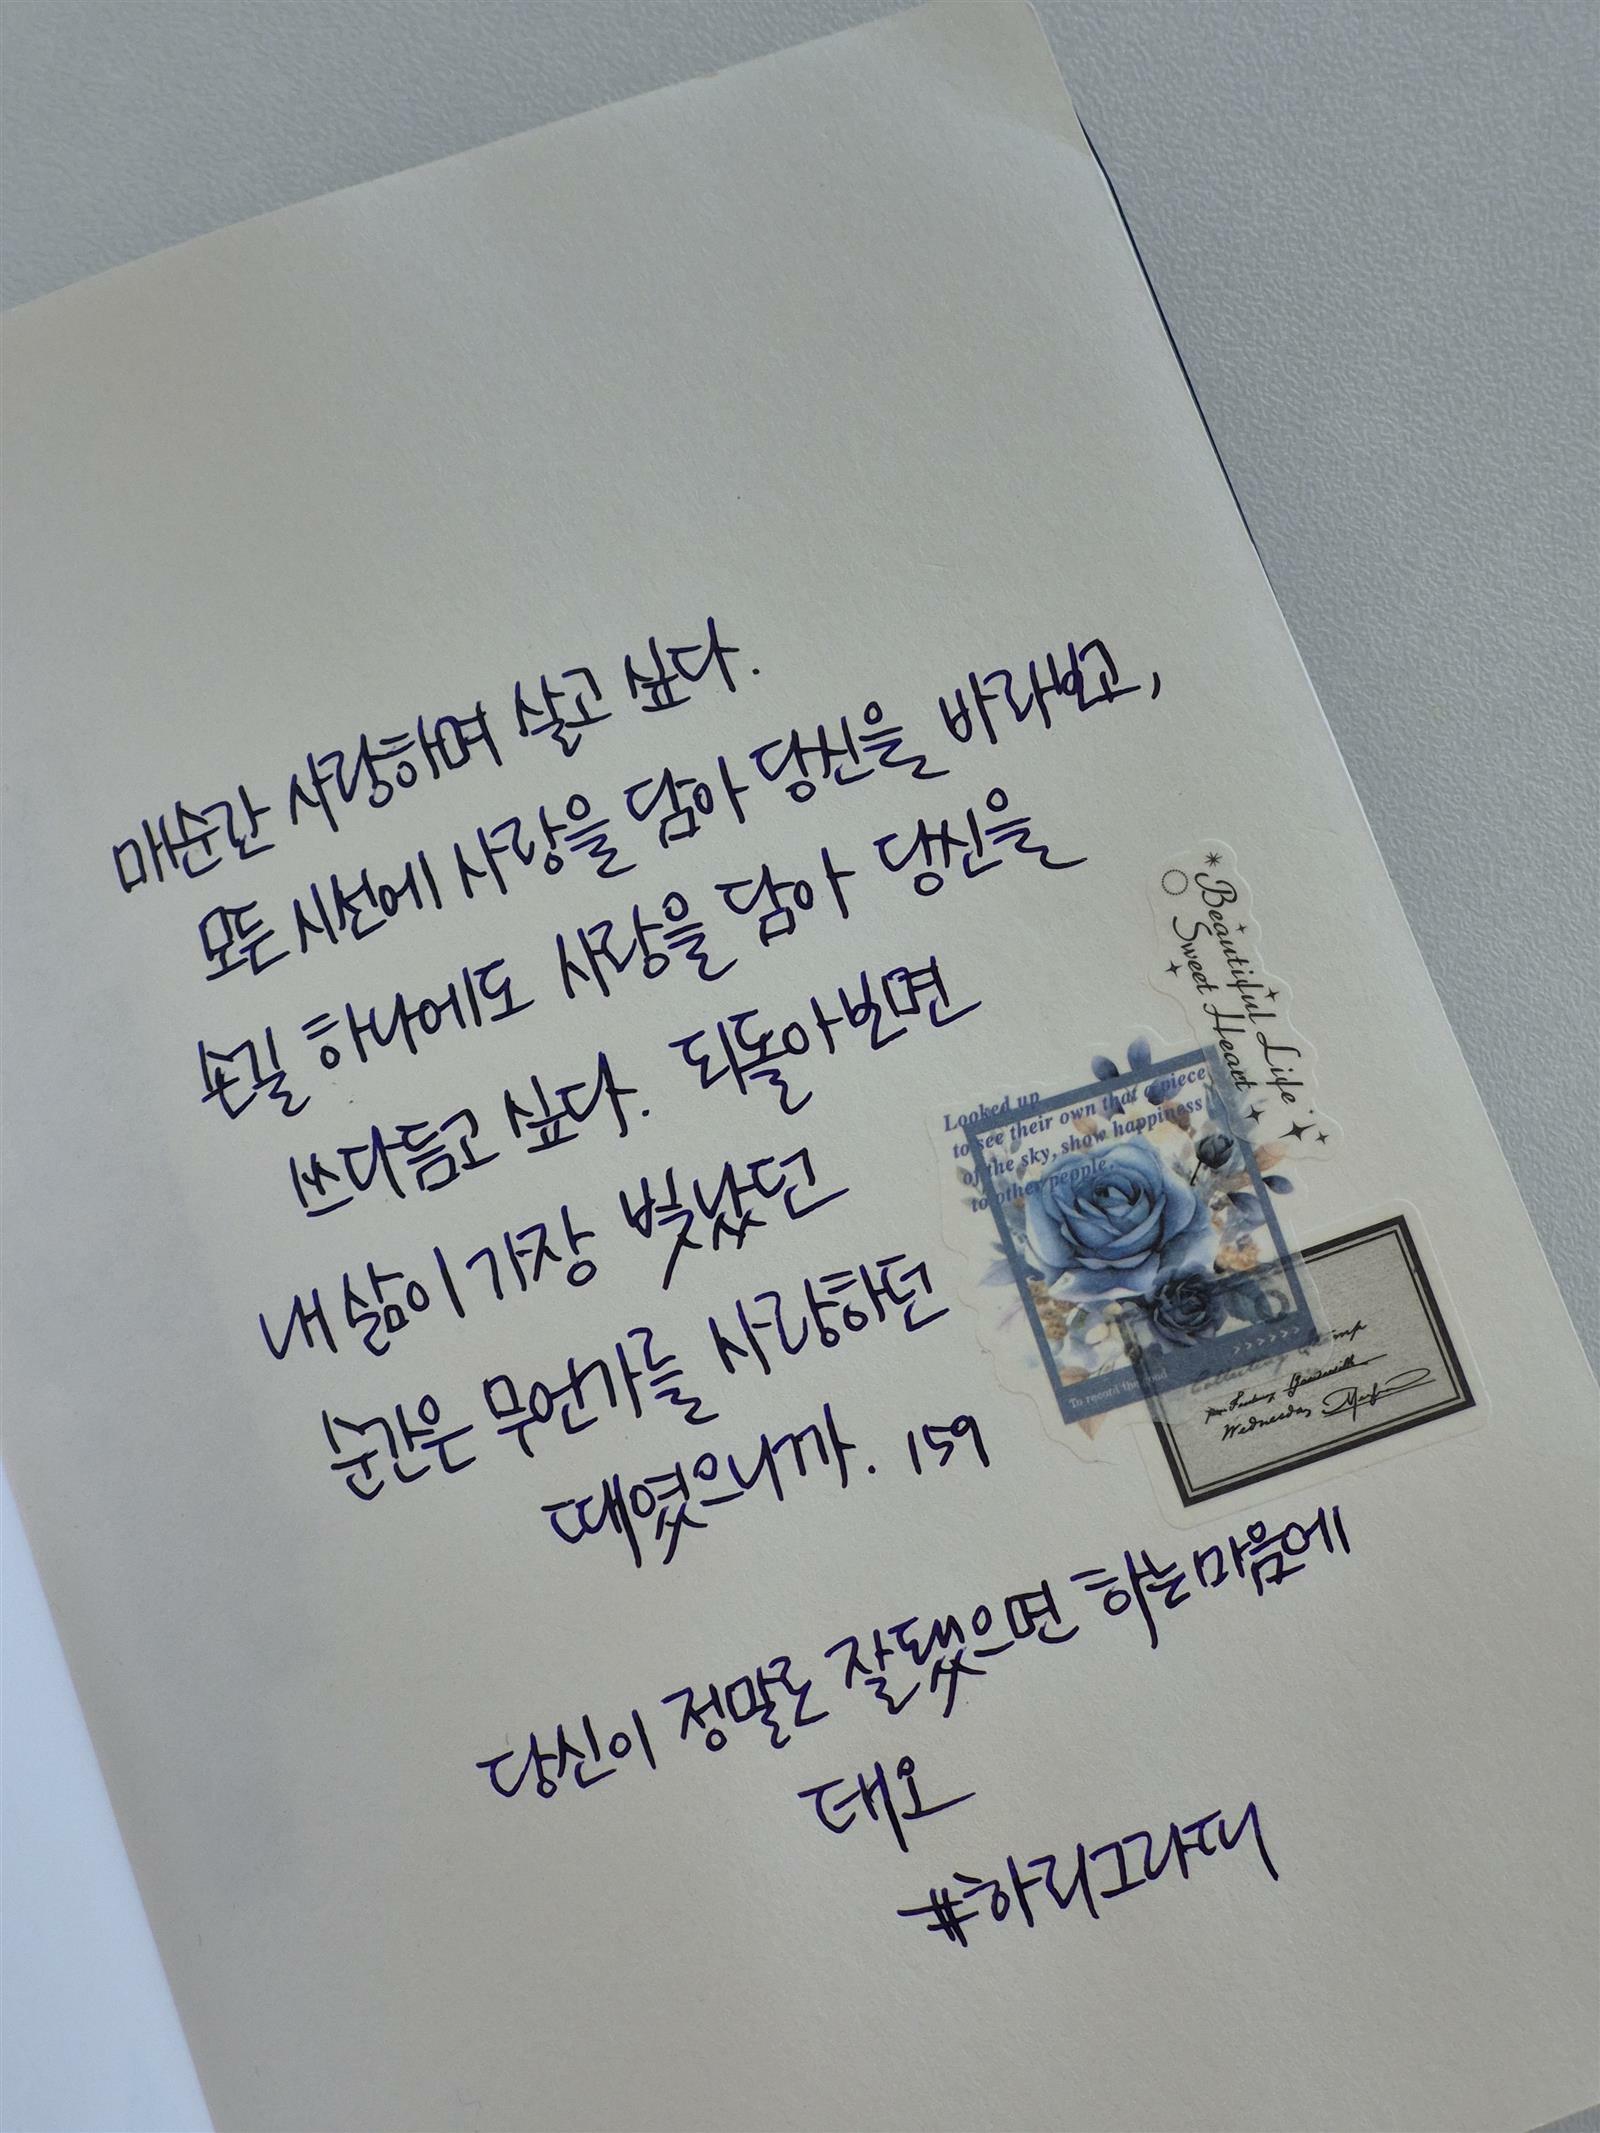 매순간 사랑하며 살고 싶다.
모든 시선에 사랑을 담아 당신을 바라보고,
손길 하나에도 사랑을 담아 당신을
쓰다듬고 싶다. 되돌아보면
내 삶이 가장 빛났던
순간은 무언가를 사랑하던
때였으니까. 159
Beautiful Life
Sweet Heart
Looked up
to see their own that a piece
of the sky, show happiness
to other people.
To record the good
Wednesday
당신이 정말로 잘됐으면 하는 마음에
태오
#하리그라피